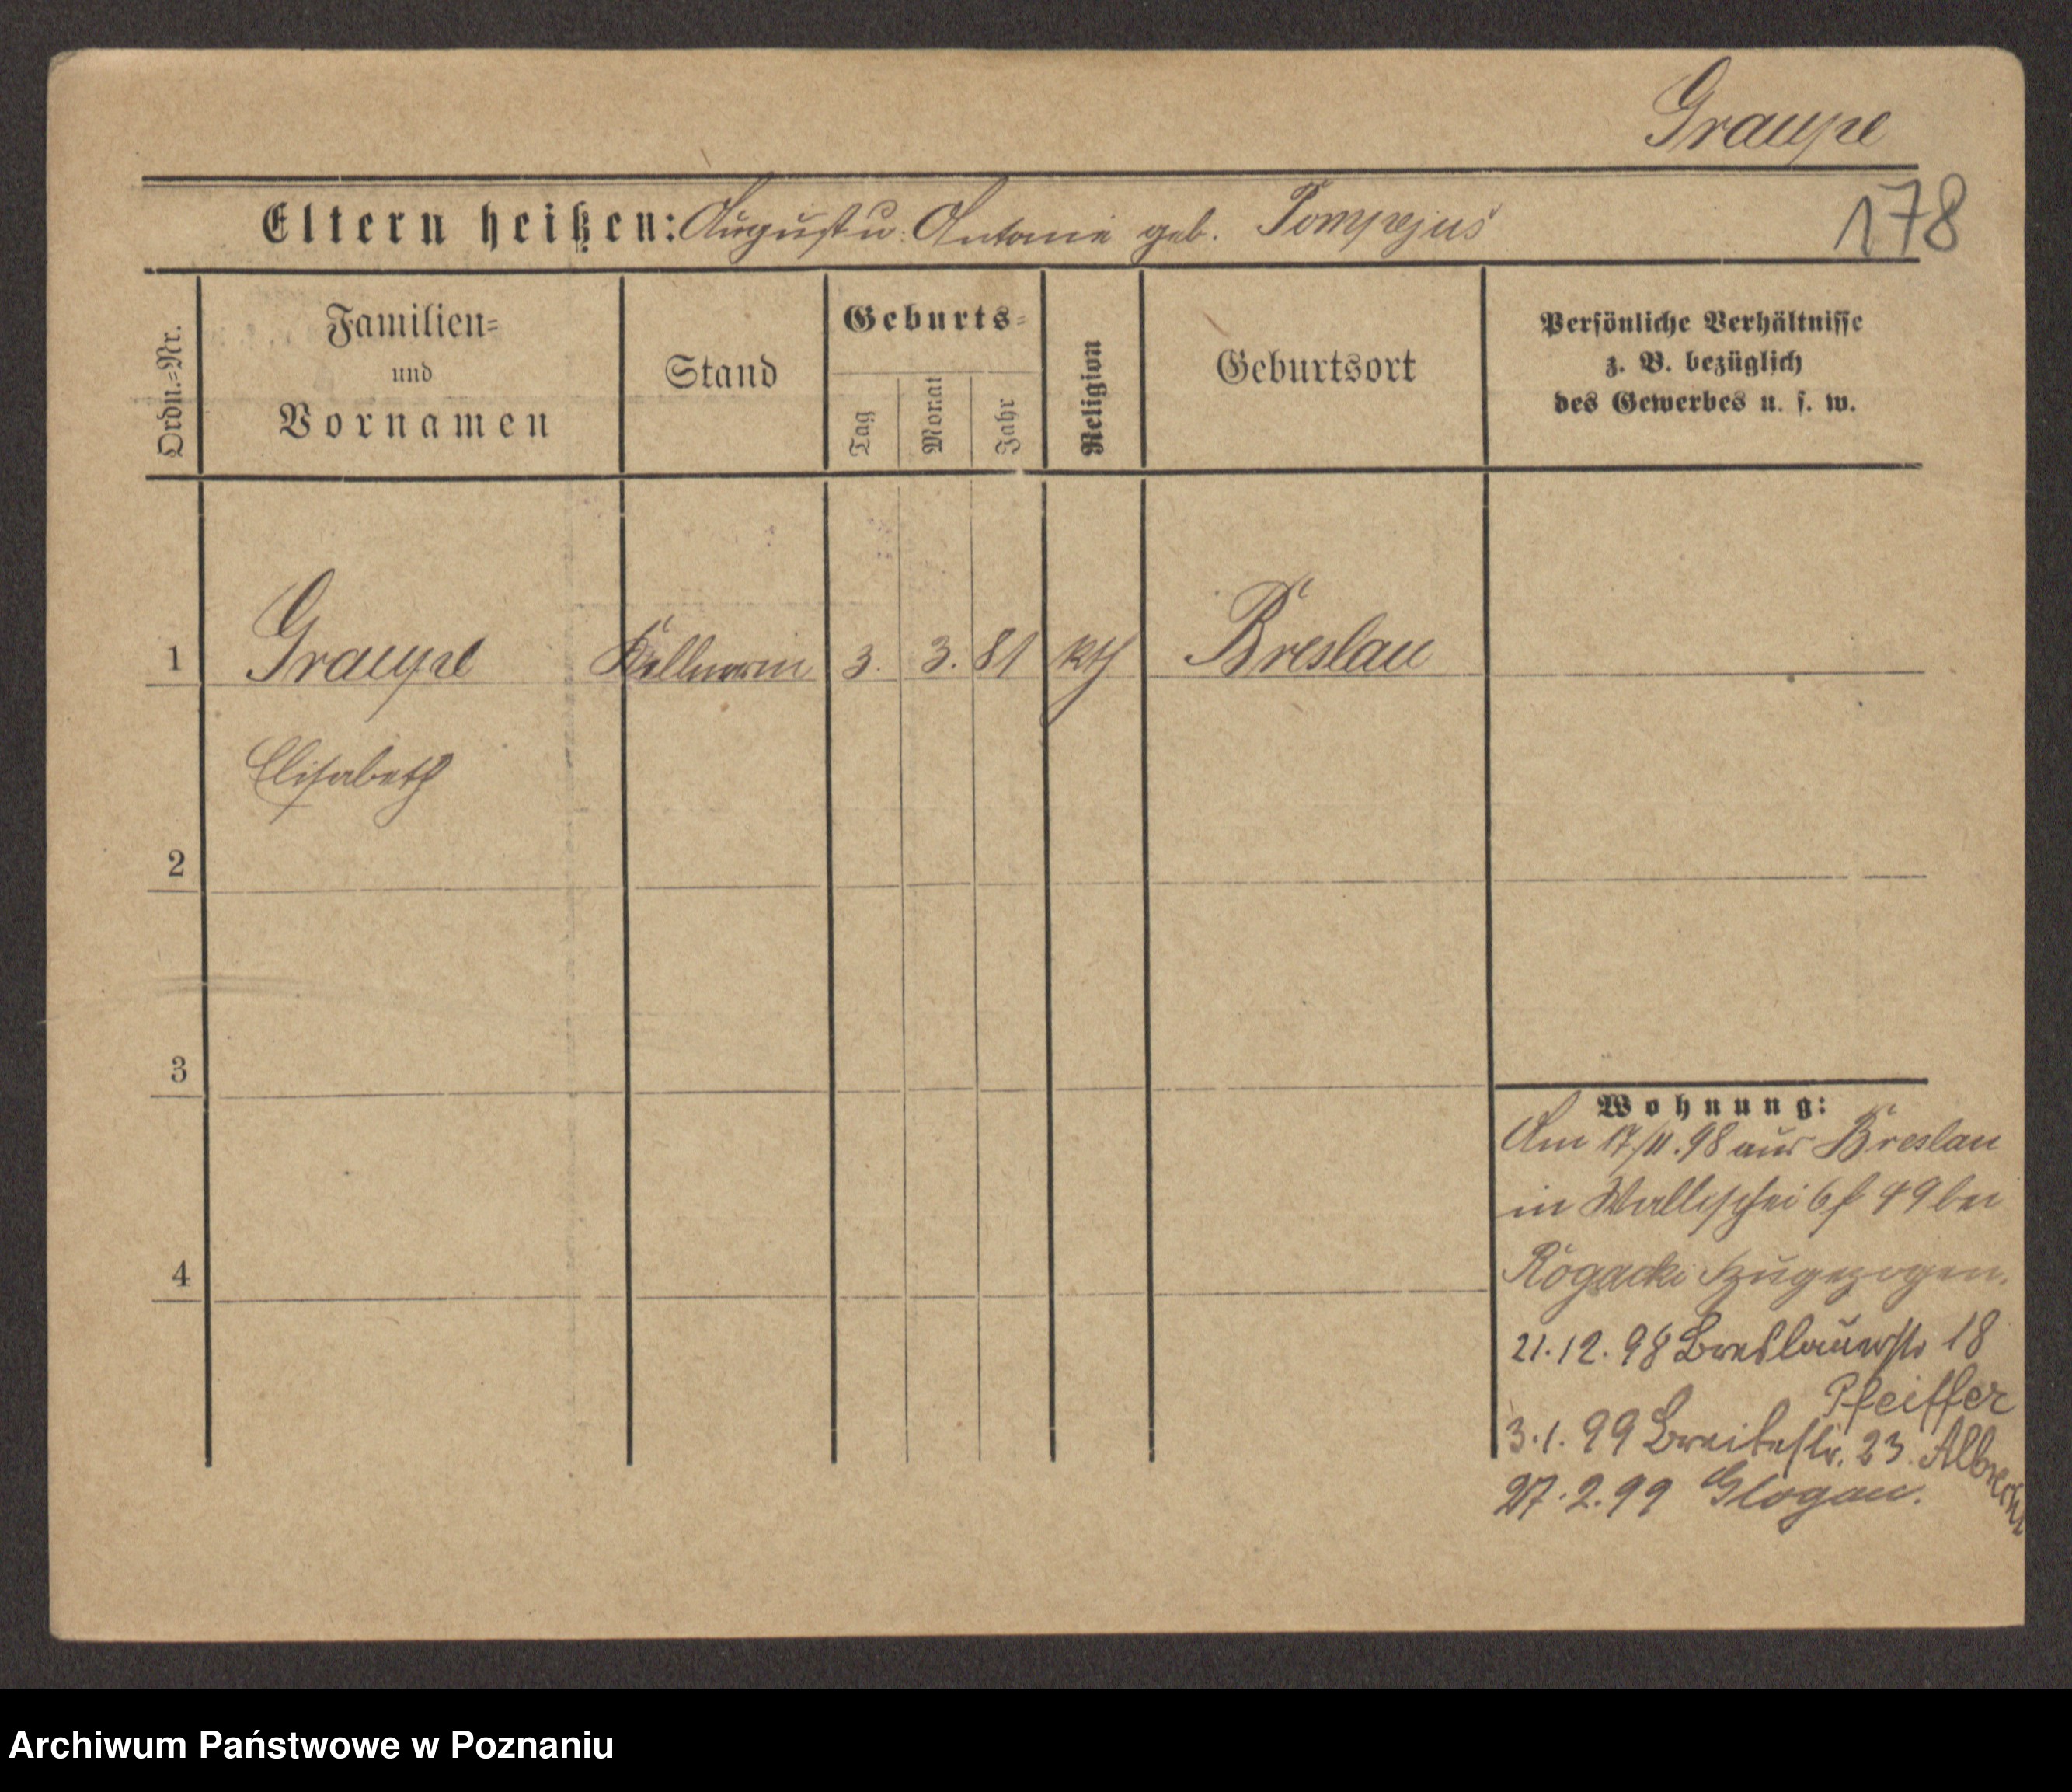 Graupe
178
Eltern heißen: August u. Antonie geb. Pompejus
Ordn.=Nr.
Familien=
und
Vornamen
Stand
Geburts=
Tag
Monat
Jahr
Religion
Geburtsort
Persönliche Verhältnisse
z. B. bezüglich
des Gewerbes u. s. w.
1 Graupe Kellnerin 3. 3. 81 kth Breslau
Elisabeth
2
3
4
Wohnung:
Am 17/11.98 aus Breslau
in Wallischei 49 bei
Rogacki zugezogen.
21.12.98 Breslauerstr 18
Pfeiffer
3.1.99 Breitestr. 23. Albrecht
27.2.99 Glogau.
Archiwum Państwowe w Poznaniu